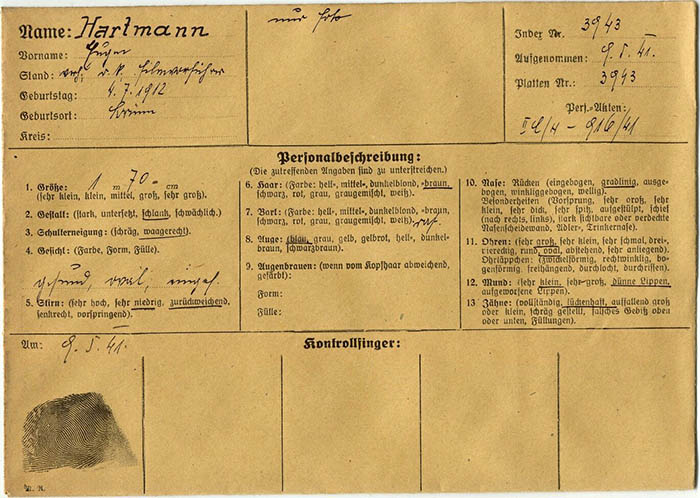 Name: Hartmann
Vorname: Eugen
Stand: verh. r. k. Filmvorführer
Geburtstag: 4.7.1912
Geburtsort: Brünn
Kreis:
nur Foto
Index Nr. 3943
Aufgenommen: 9.5.41.
Platten Nr.: 3943
Pers.-Akten:
916/41
Personalbeschreibung:
(Die zutreffenden Angaben sind zu unterstreichen.)
1. Größe: 1 m 70 cm
(sehr klein, klein, mittel, groß, sehr groß).
2. Gestalt: (stark, untersetzt, schlank, schwächlich).
3. Schulterneigung: (schräg, waagerecht).
4. Gesicht: (Farbe, Form, Fülle).
gesund, oval, eingef.
5. Stirn: (sehr hoch, sehr niedrig, zurückweichend,
senkrecht, vorspringend).
6. Haar: (Farbe: hell-, mittel-, dunkelblond, -braun,
schwarz, rot, grau, graugemischt, weiß).
7. Bart: (Farbe: hell-, mittel-, dunkelblond, -braun,
schwarz, rot, grau, graugemischt, weiß). ras.
8. Auge: (blau, grau, gelb, gelbrot, hell-, dunkel-
braun, schwarzbraun).
9. Augenbrauen: (wenn vom Kopfhaar abweichend,
gefärbt):
Form:
Fülle:
10. Nase: Rücken (eingebogen, gradlinig, ausge-
bogen, winkliggebogen, wellig).
Besonderheiten (Vorsprung, sehr groß, sehr
klein, sehr dick, sehr spitz, aufgestülpt, schief
(nach rechts, links), stark sichtbare oder verdeckte
Nasenscheidewand, Adler-, Trinkernase).
11. Ohren: (sehr groß, sehr klein, sehr schmal, drei-,
viereckig, rund, oval, abstehend, sehr anliegend).
Ohrläppchen: (zwickelförmig, rechtwinklig, bo-
genförmig freihängend, durchlocht, durchrissen).
12. Mund: (sehr klein, sehr groß, dünne Lippen,
aufgeworfene Lippen).
13 Zähne: (vollständig, lückenhaft, auffallend groß
oder klein, schräg gestellt, falsches Gebiß oben
oder unten, Füllungen).
Am: 9.5.41.
Kontrollfinger: